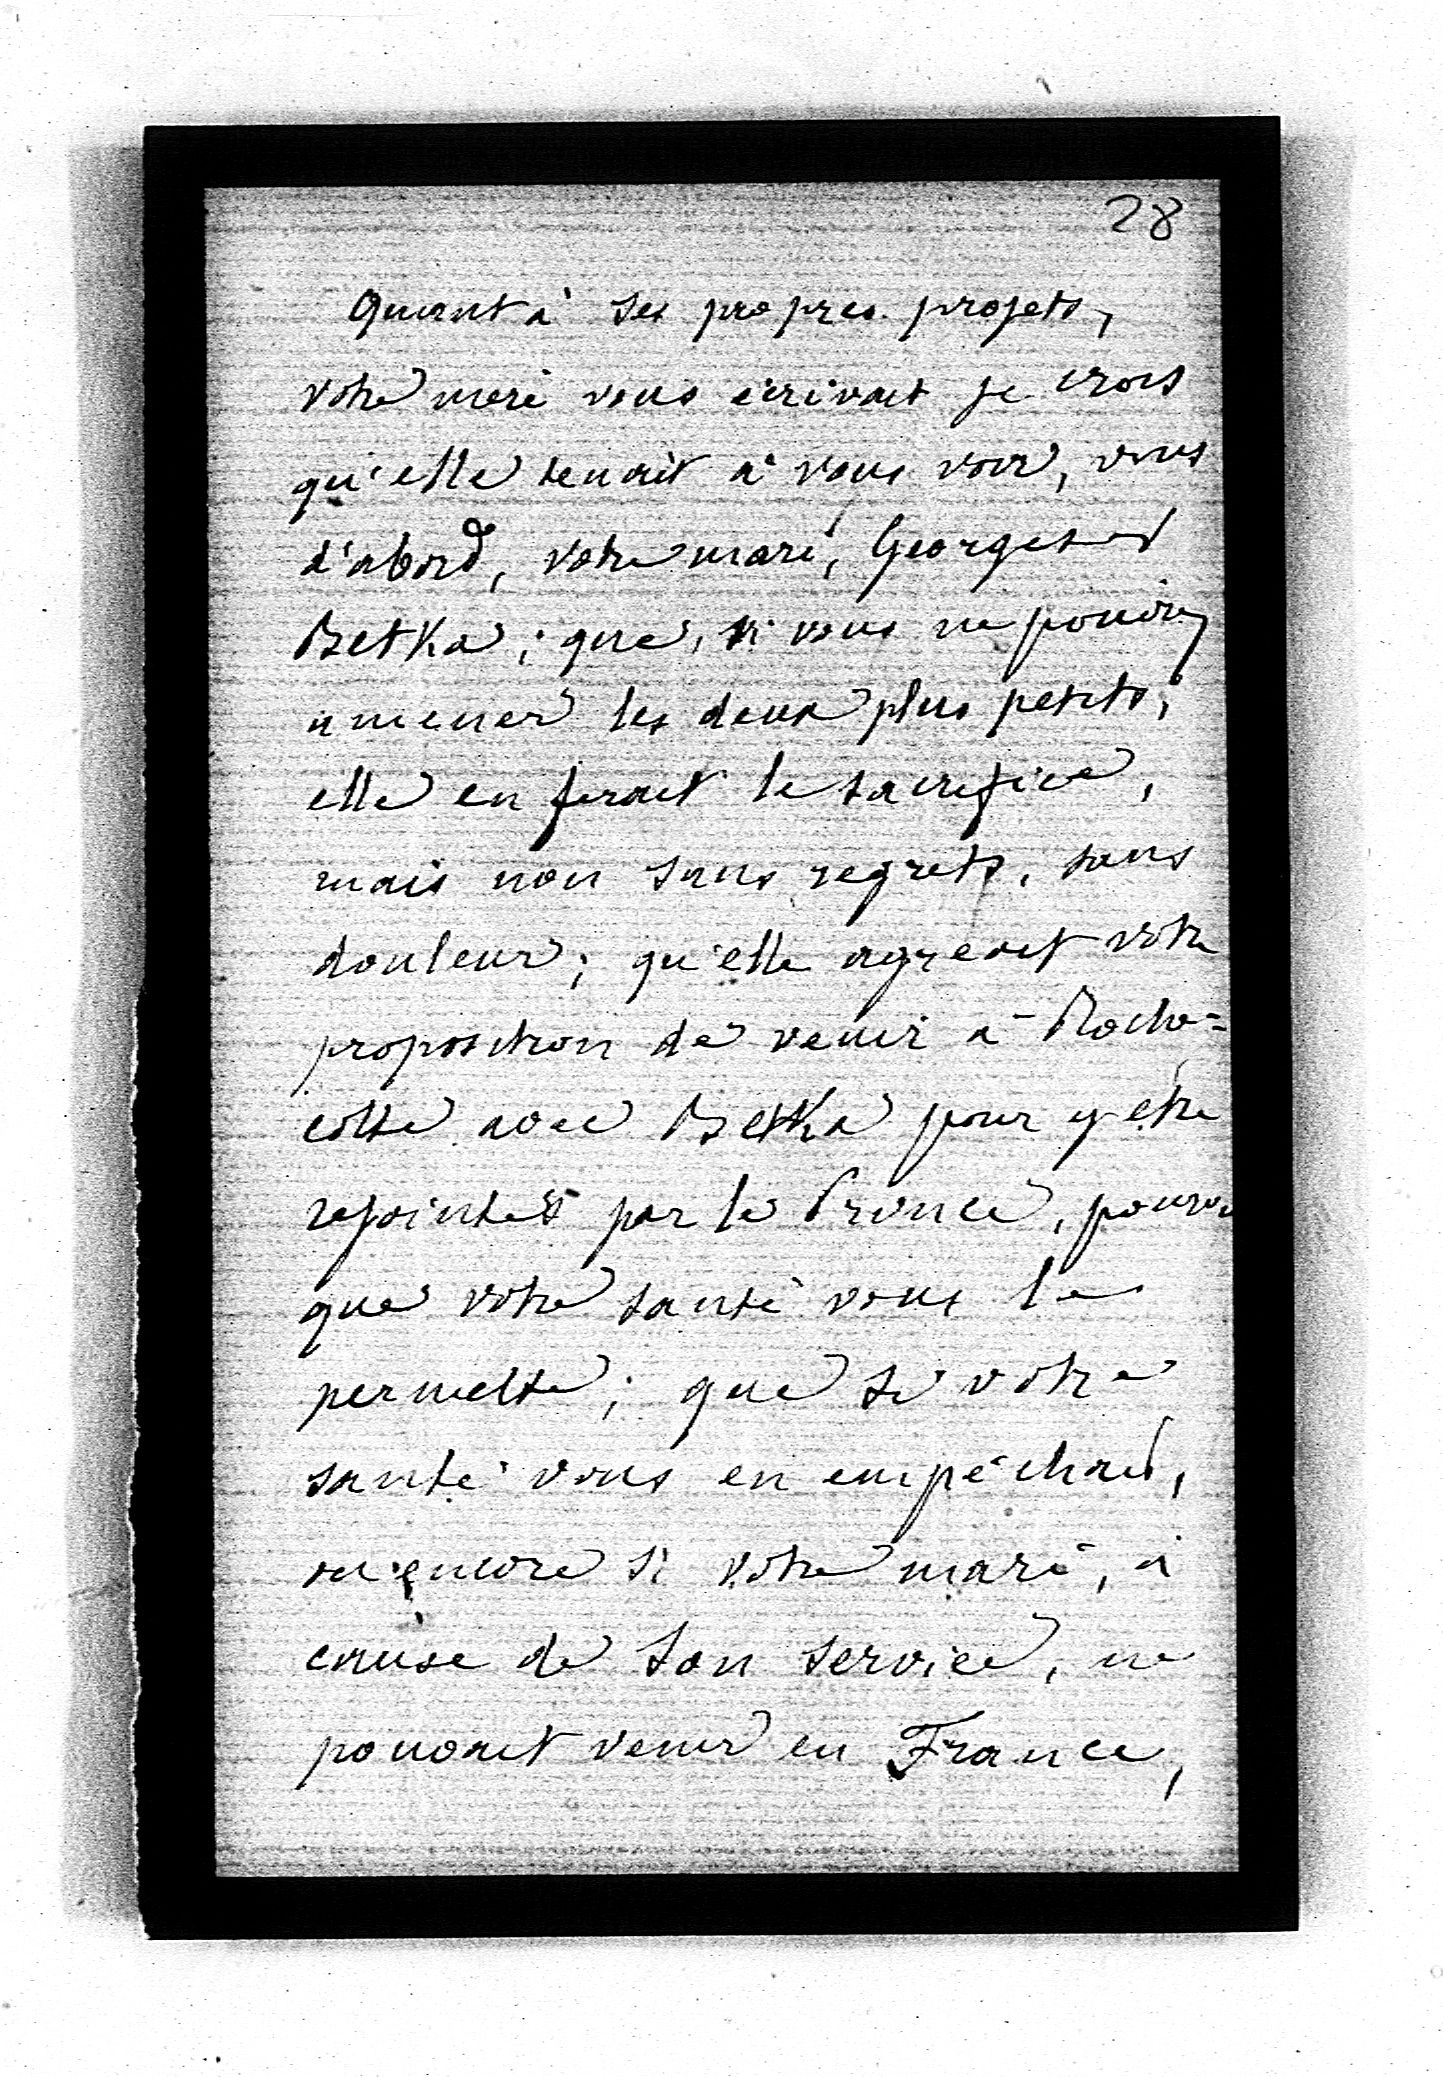 28
Quant à ses propres projets,
votre mère vous écrivait je crois
qu'elle tenait à vous voir, vous
d'abord, votre mari, Georges et
Betka; que, si vous ne pouviez
amener les deux plus petits,
elle en ferait le sacrifice,
mais non sans regrets, sans
douleur; qu'elle agréait votre
proposition de venir à Roche=
cotte avec Betka pour y être
rejointes par le Prince, pourvu
que votre santé vous le
permette; que si votre
santé vous en empêchait,
ou encore si votre mari, à
cause de son service, ne
pouvait venir en France,